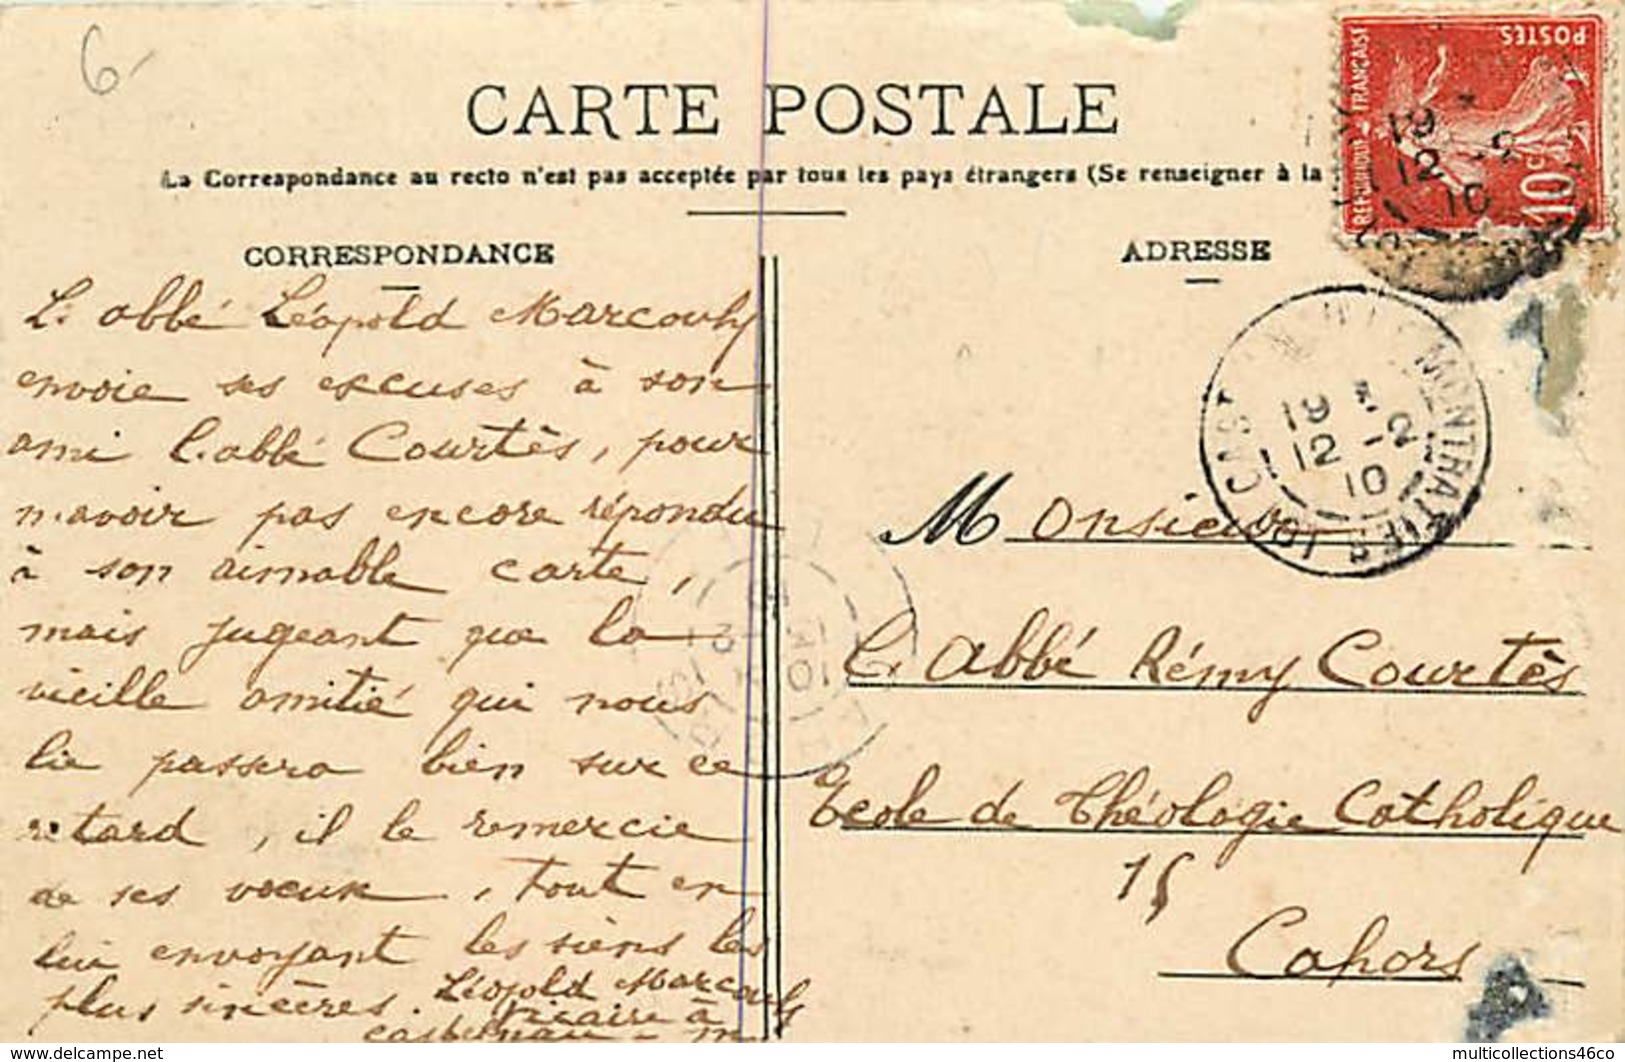 6-
CARTE POSTALE
La Correspondance au recto n'est pas acceptée par tous les pays étrangers (Se renseigner à la
CORRESPONDANCE
L. abbé Léopold Marcouly
envoie ses excuses à son
ami l. abbé Courtès, pour
n. avoir pas encore répondu
à son aimable carte,
mais jugeant que la
vieille amitié qui nous
lie passera bien sur ce
retard, il le remercie
de ses voeux, tout en
lui envoyant les siens les
plus sincères. Léopold Marcouly
vicaire à
castelnau - m
ADRESSE
Monsieur
l. Abbé Rémy Courtès
Ecole de Théologie Catholique
15
Cahors
REPUBLIQUE FRANÇAISE
POSTES
10c
19 *
12 -2
10
CAST MONTRATIER (LOT)
19 *
12 -2
10
multicollections46co